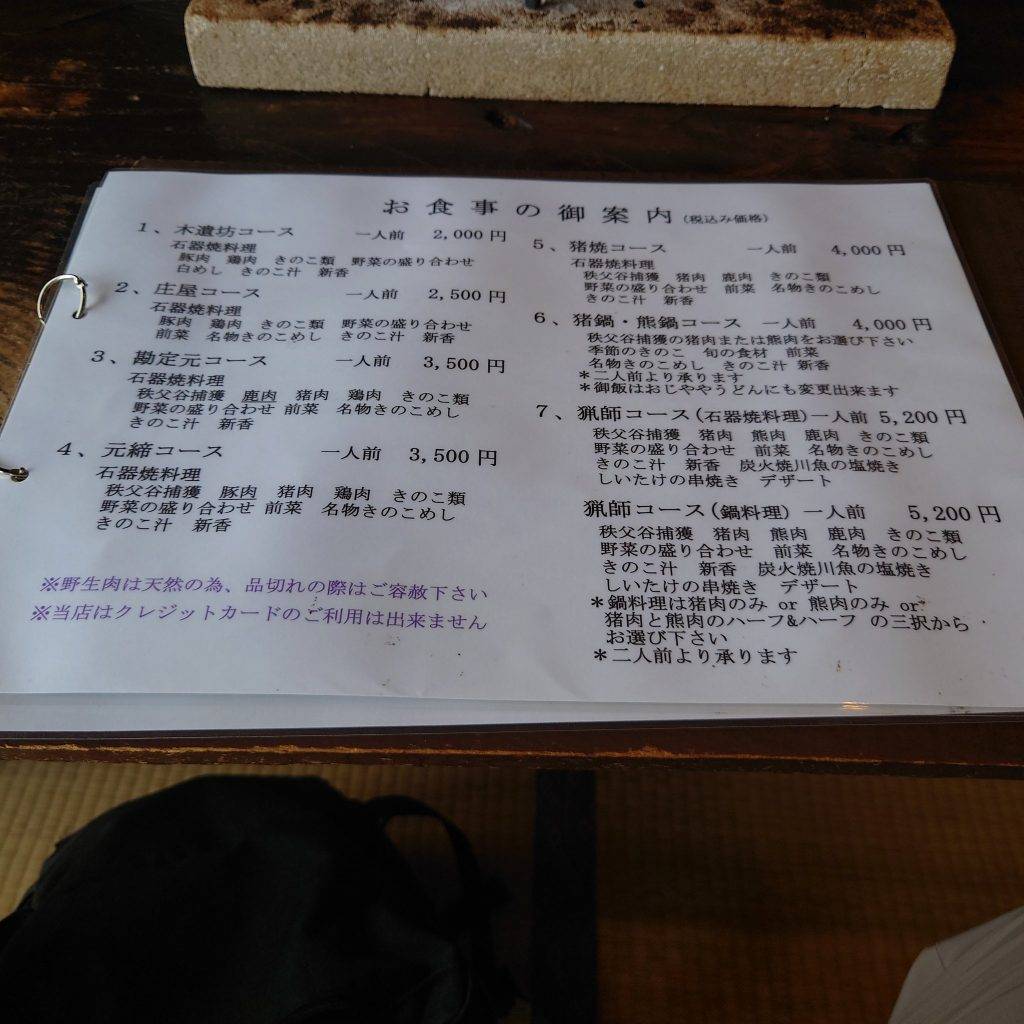 お食事の御案内 (税込み価格)
1、木遺坊コース 一人前 2,000 円
石器焼料理
豚肉 鶏肉 きのこ類 野菜の盛り合わせ
白めし きのこ汁 新香
2、庄屋コース 一人前 2,500 円
石器焼料理
豚肉 鶏肉 きのこ類 野菜の盛り合わせ
前菜 名物きのこめし きのこ汁 新香
3、勘定元コース 一人前 3,500 円
石器焼料理
秩父谷捕獲 鹿肉 猪肉 鶏肉 きのこ類
野菜の盛り合わせ 前菜 名物きのこめし
きのこ汁 新香
4、元締コース 一人前 3,500 円
石器焼料理
秩父谷捕獲 豚肉 猪肉 鶏肉 きのこ類
野菜の盛り合わせ 前菜 名物きのこめし
きのこ汁 新香
※野生肉は天然の為、品切れの際はご容赦下さい
※当店はクレジットカードのご利用は出来ません
5、猪焼コース 一人前 4,000 円
石器焼料理
秩父谷捕獲 猪肉 鹿肉 きのこ類
野菜の盛り合わせ 前菜 名物きのこめし
きのこ汁 新香
6、猪鍋・熊鍋コース 一人前 4,000 円
秩父谷捕獲の猪肉または熊肉をお選び下さい
季節のきのこ 旬の食材 前菜
名物きのこめし きのこ汁 新香
＊二人前より承ります
＊御飯はおじややうどんにも変更出来ます
7、猟師コース(石器焼料理)一人前 5,200 円
秩父谷捕獲 猪肉 熊肉 鹿肉 きのこ類
野菜の盛り合わせ 前菜 名物きのこめし
きのこ汁 新香 炭火焼川魚の塩焼き
しいたけの串焼き デザート
猟師コース(鍋料理) 一人前 5,200 円
秩父谷捕獲 猪肉 熊肉 鹿肉 きのこ類
野菜の盛り合わせ 前菜 名物きのこめし
きのこ汁 新香 炭火焼川魚の塩焼き
しいたけの串焼き デザート
＊鍋料理は猪肉のみ or 熊肉のみ or
猪肉と熊肉のハーフ&ハーフ の三択から
お選び下さい
＊二人前より承ります